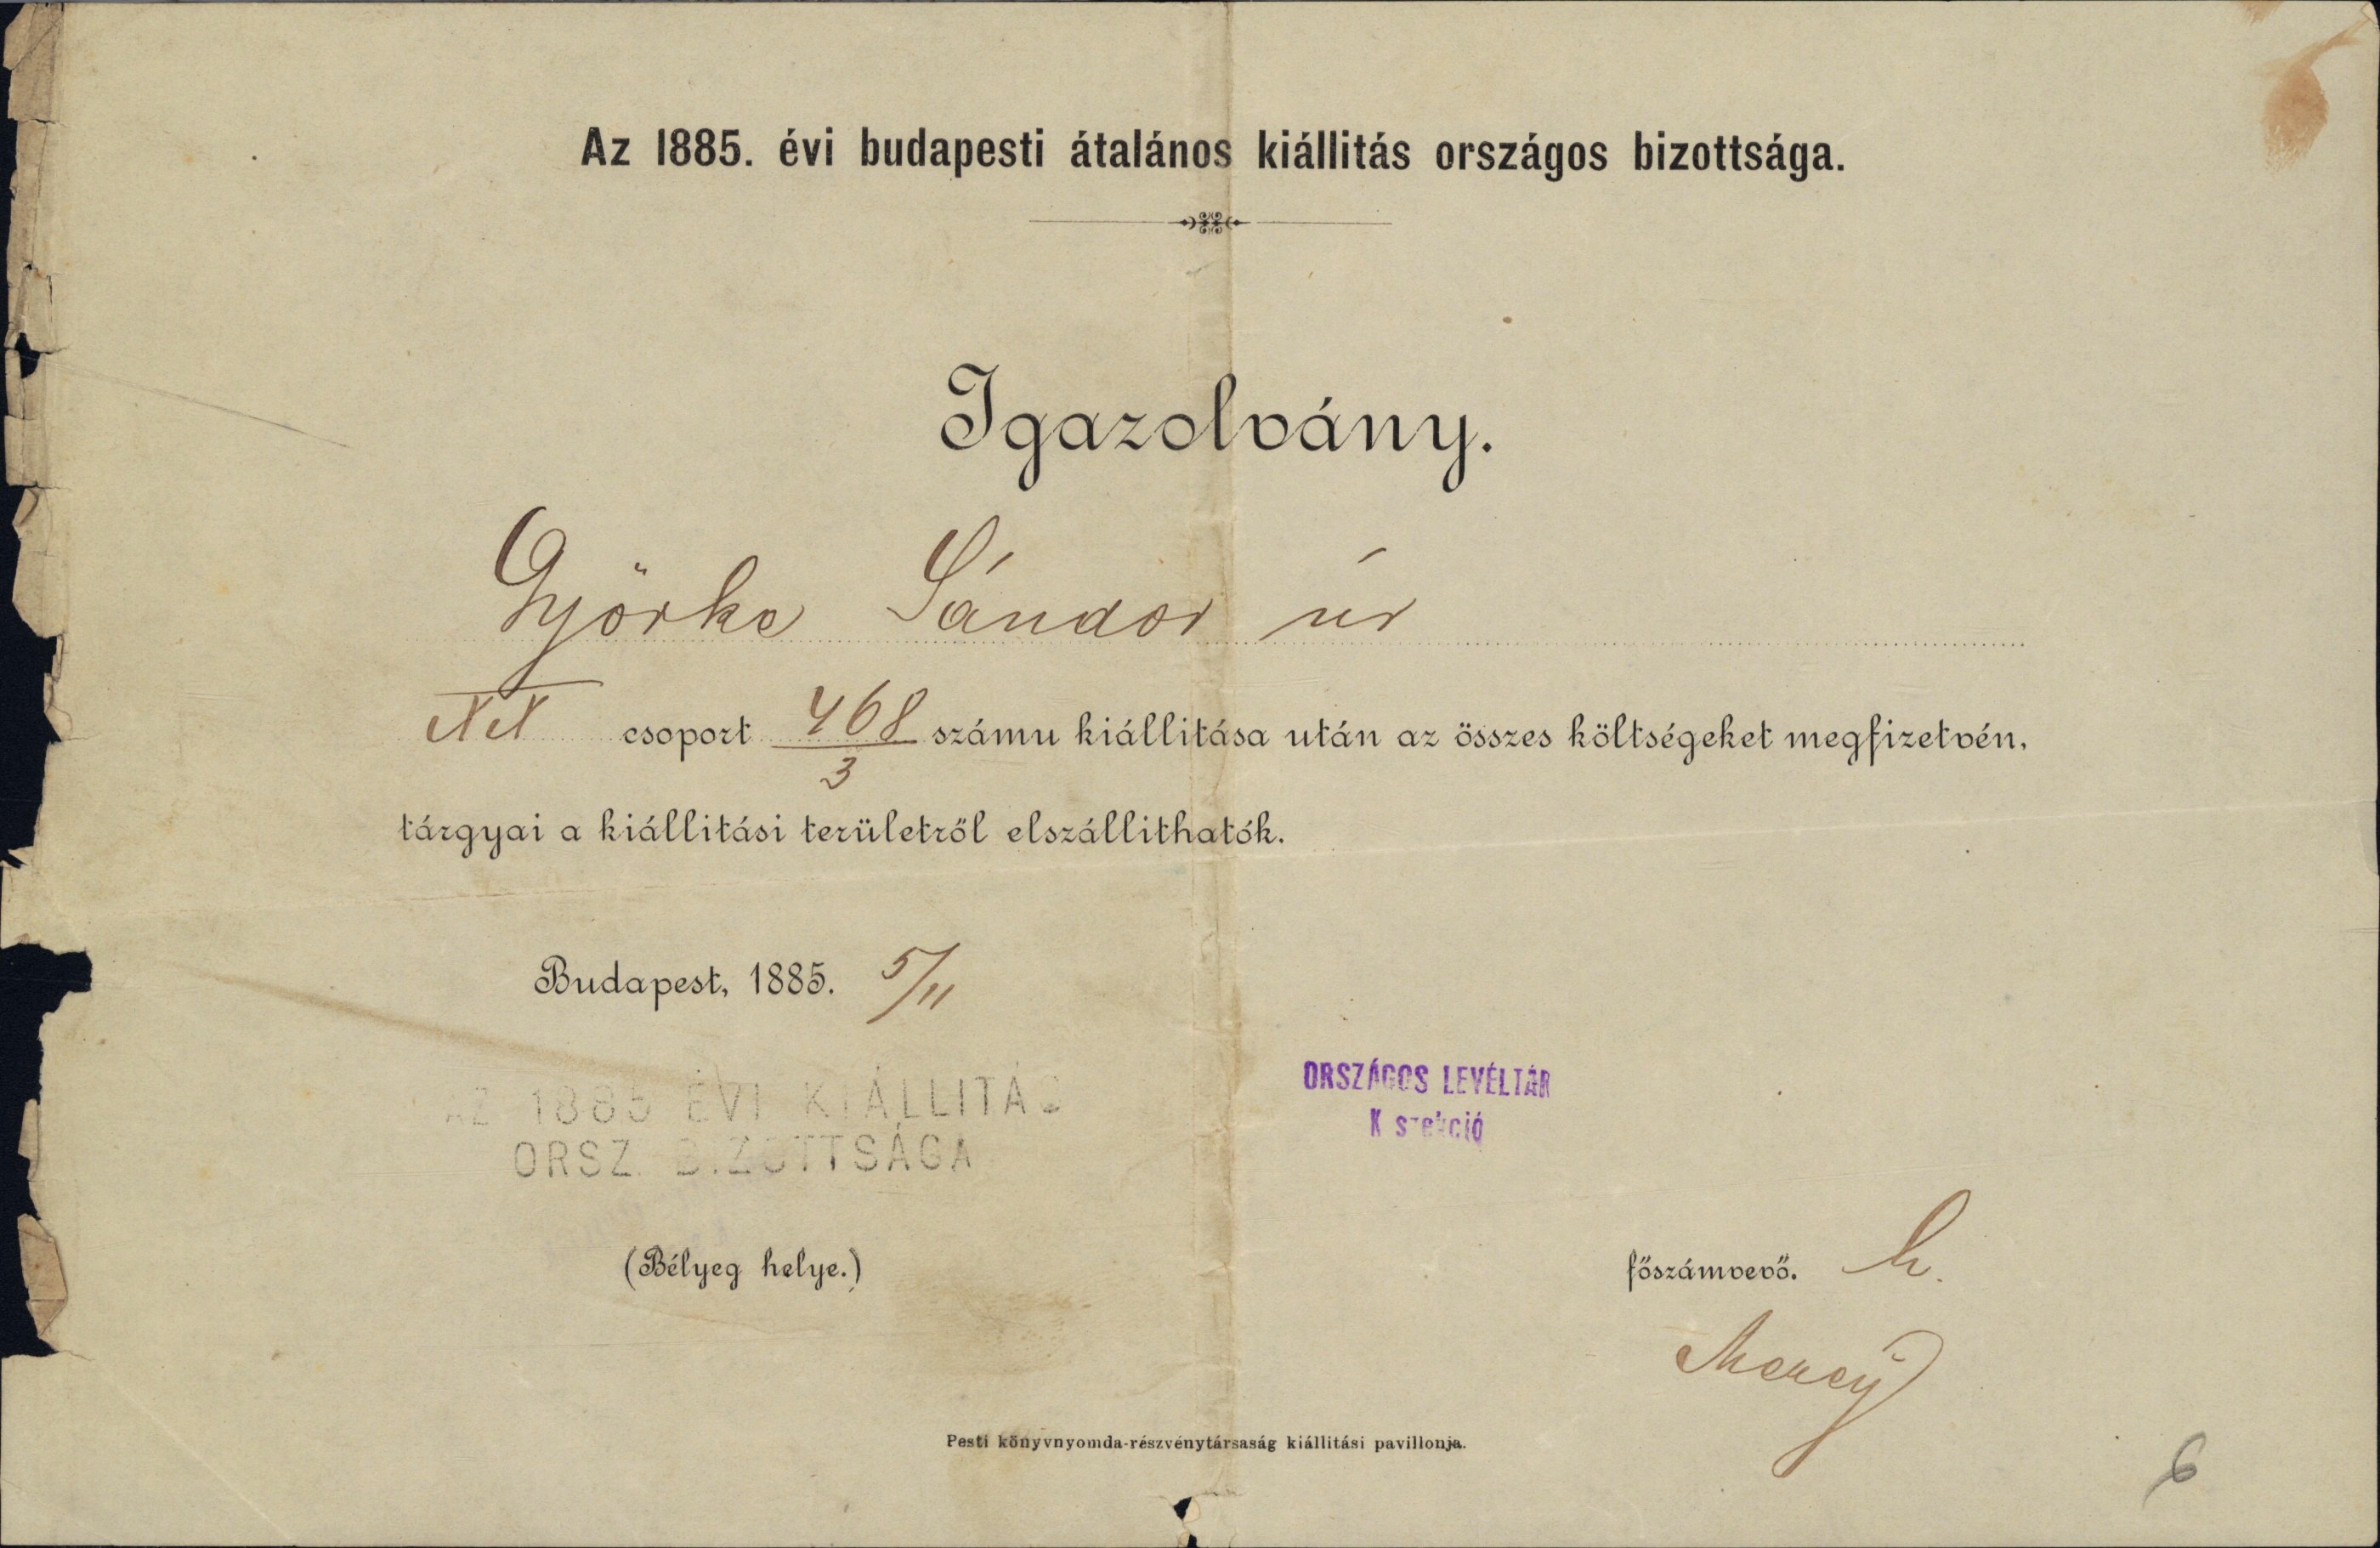 Az 1885. évi budapesti átalános kiállitás országos bizottsága.
Igazolvány.
Györke Sándor úr
XX csoport 468/3 számu kiállitása után az összes költségeket megfizetvén,
tárgyai a kiállitási területről elszállithatók.
Budapest, 1885. 5/11
AZ 1885 ÉVI KIÁLLITÁS
ORSZ. BIZOTTSÁGA
ORSZÁGOS LEVÉLTÁR
K szekció
(Bélyeg helye.)
főszámvevő. h.
Pesti könyvnyomda-részvénytársaság kiállitási pavillonja.
6